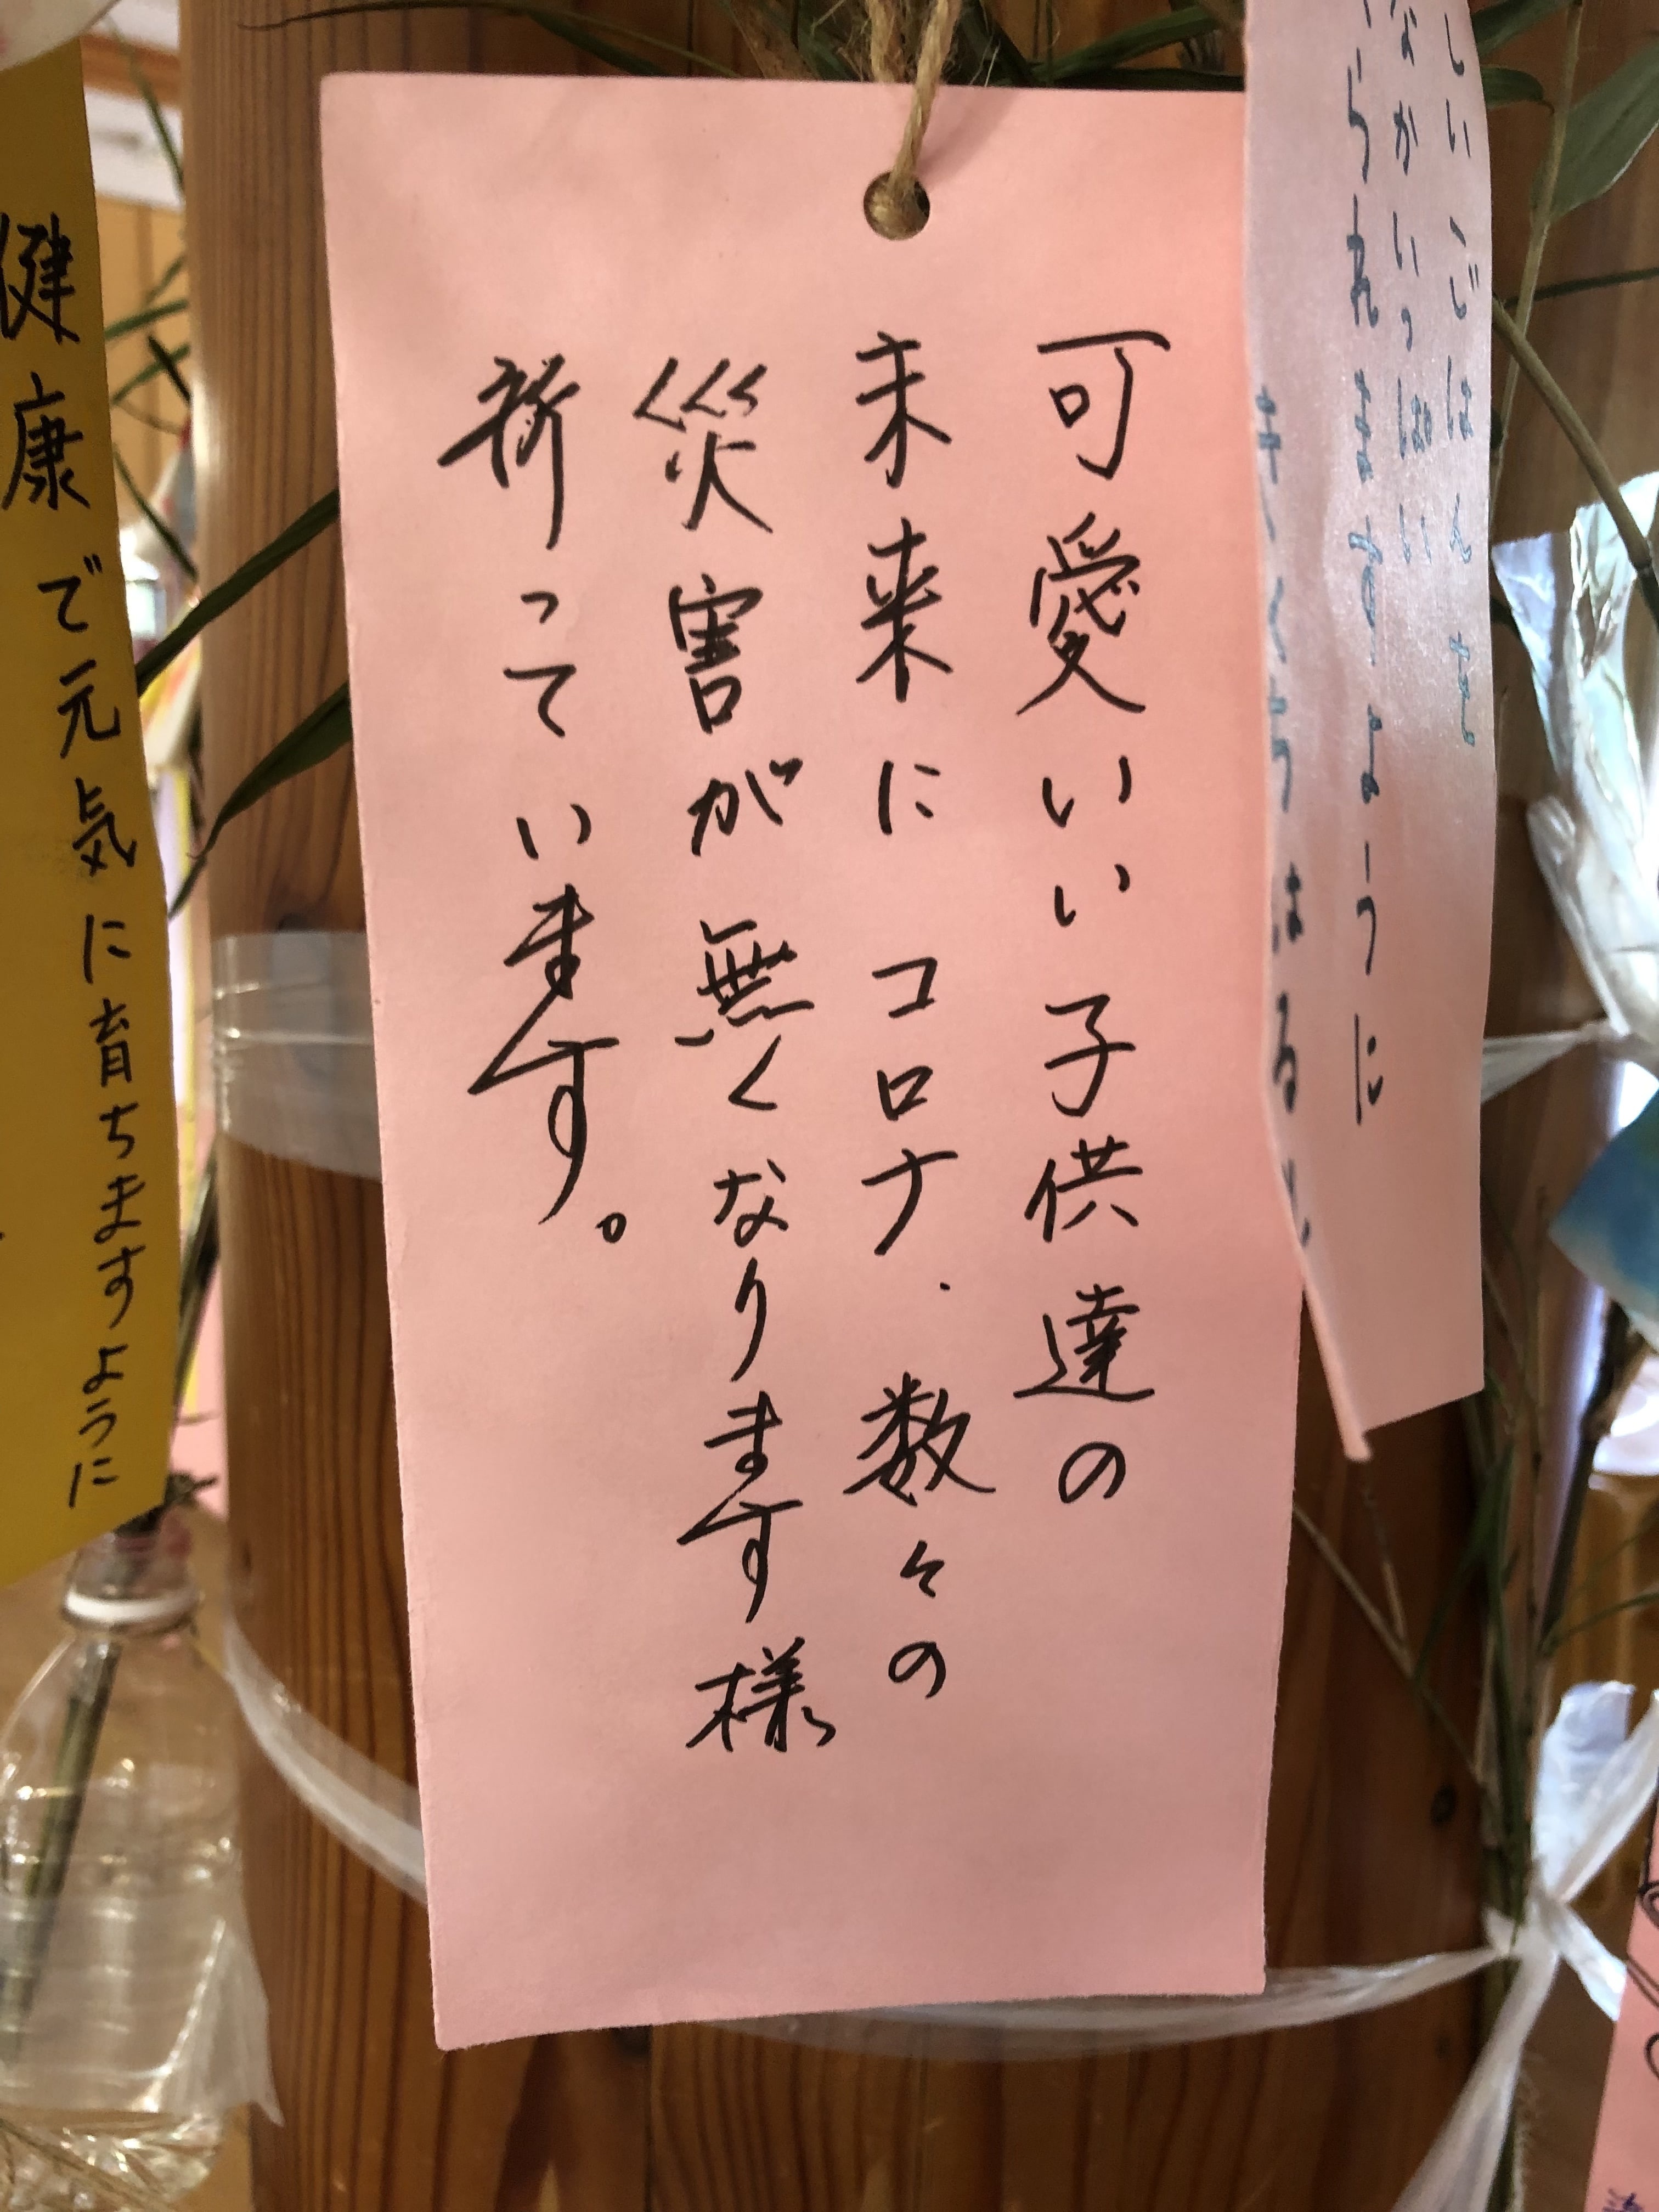 可愛いい子供達の
未来にコロナ.数々の
災害が無くなります様
祈っています。
健康で元気に育ちますように
しいごはんを
なかいっぱい
られますように